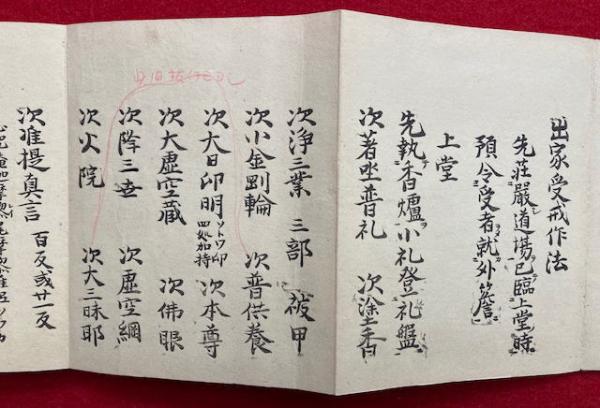 出家受戒作法
先莊嚴道場已臨上堂時
預令受者就外簷
上堂
先執香爐小礼登礼盤
次著坐普礼 次塗香
次浄三業 三部 被甲
次小金剛輪 次普供養
次大日印明 ソトワ印 四処加持 次本尊
次大虚空蔵 次佛眼
次降三世 次虚空網
次火院 次大三昧耶
次准提真言 百反或廿一反